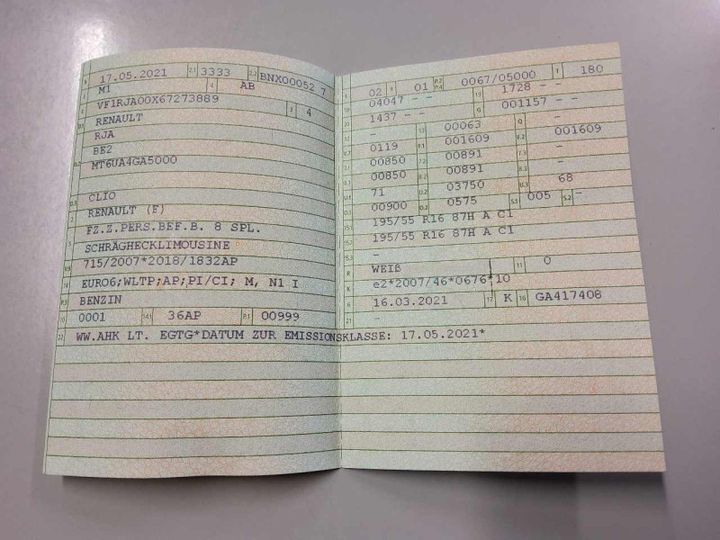 B 17.05.2021 2.1 3333 2.2 BNX00052 7
M1 4 AB
VF1RJA00X67273889
RENAULT 3 4
RJA
BE2
MT6UA4GA5000
CLIO
RENAULT (F)
FZ.Z.PERS.BEF.B. 8 SPL.
SCHRÄGHECKLIMOUSINE
715/2007*2018/1832AP
EURO6;WLTP;AP;PI/CI; M, N1 I
BENZIN
0001 14.1 36AP P.1 00999
22 WW.AHK LT. EGTG*DATUM ZUR EMISSIONSKLASSE: 17.05.2021*
02 9 01 P.2 P.4 0067/05000 T 180
04047 - - 1728 - -
1437 - - G 001157 - -
- 13 00063 Q -
0119 001609 001609
00850 00891 -
00850 00891 -
71 U.2 03750 U.3 68
00900 O.2 0575 S.1 005 S.2 -
195/55 R16 87H A C1
195/55 R16 87H A C1
-
WEIß 11 0
e2*2007/46*0676*10
6 16.03.2021 17 K 16 GA417408
21 -